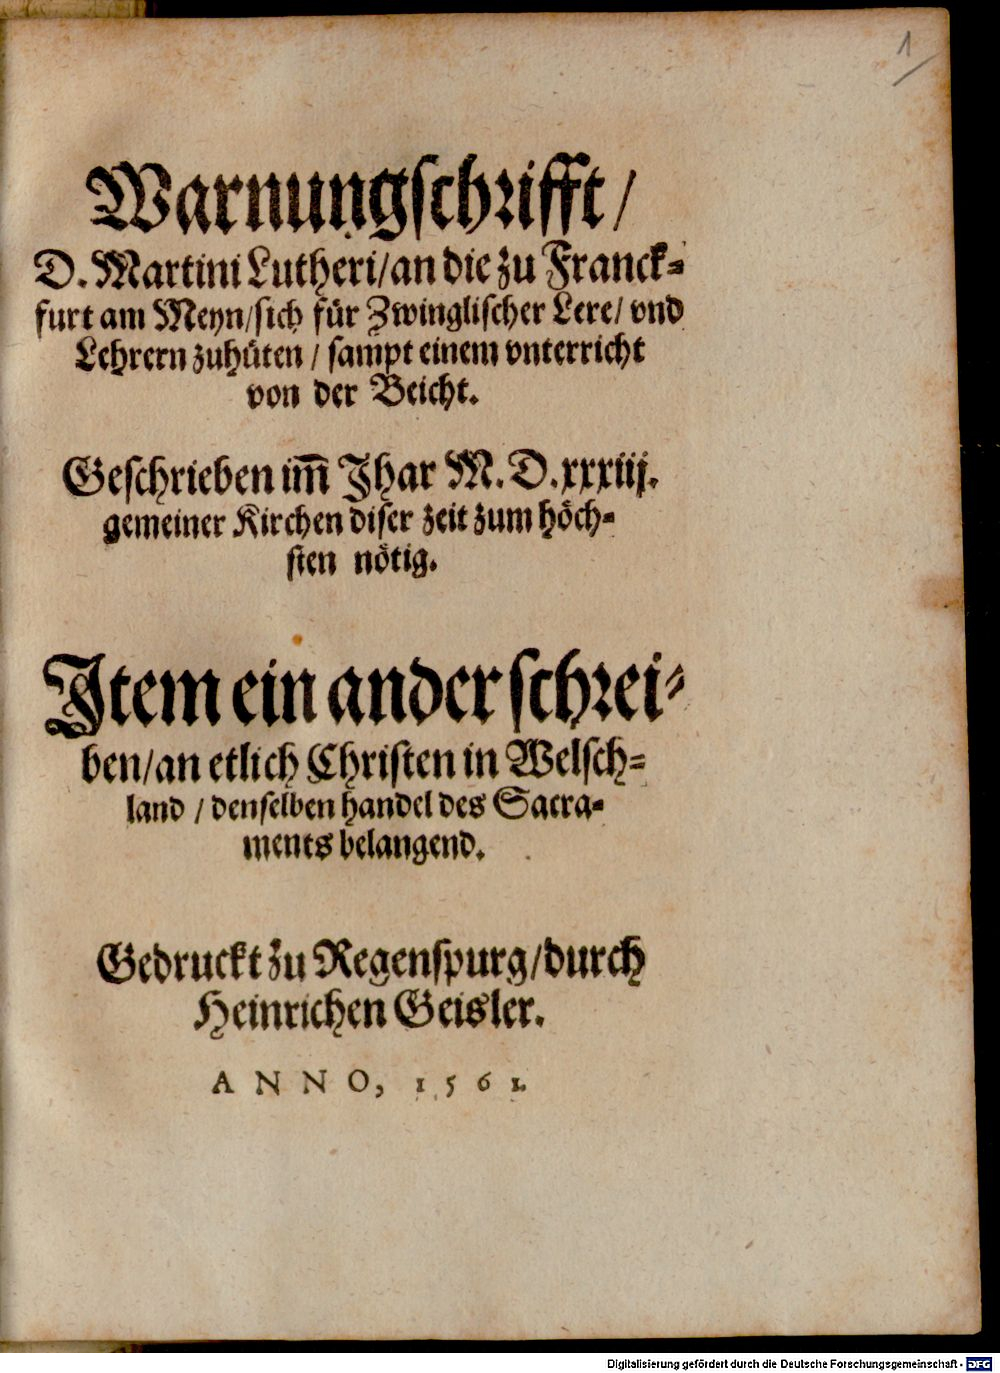 1
Warnungschrifft /
D. Martini Lutheri / an die zu Franck⸗
furt am Meyn / sich für Zwinglischer Lere / vnd
Lehrern zuhüten / sampt einem vnterricht
von der Beicht.
Geschrieben im̄ Jhar M. D. xxxiij.
gemeiner Kirchen diser zeit zum höch⸗
sten nötig.
Item ein ander schrei⸗
ben / an etlich Christen in Welsch⸗
land / denselben handel des Sacra⸗
ments belangend.
Gedruckt zu Regenspurg / durch
Heinrichen Geisler.
ANNO, 1561.
Digitalisierung gefördert durch die Deutsche Forschungsgemeinschaft - DFG